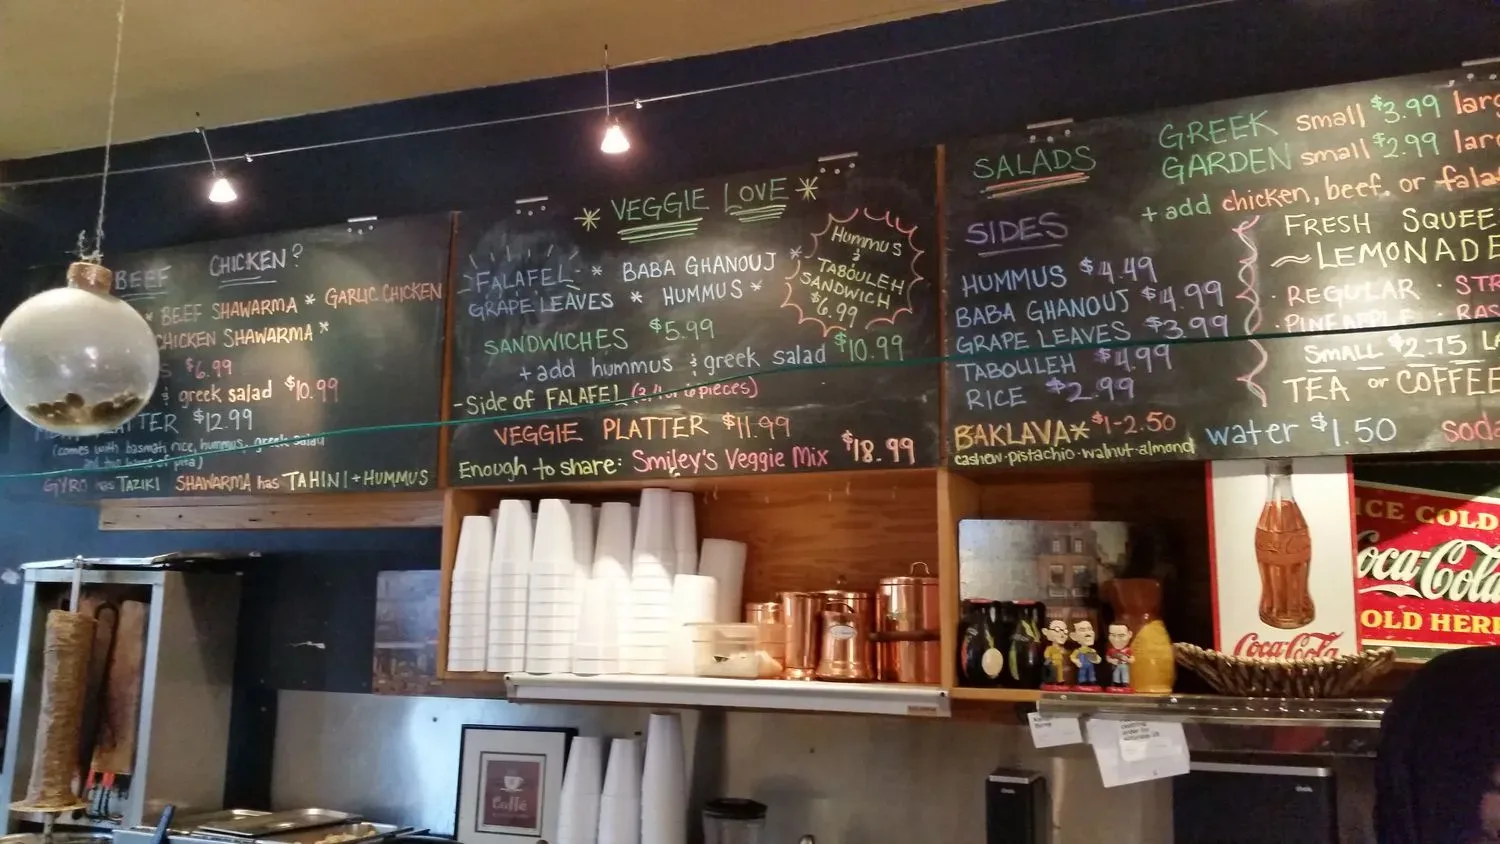 BEEF CHICKEN?
* BEEF SHAWARMA * GARLIC CHICKEN
CHICKEN SHAWARMA *
$6.99
& greek salad $10.99
PLATTER $12.99
(comes with basmati rice, hummus, greek salad
pita)
GYRO has TAZIKI SHAWARMA has TAHINI + HUMMUS
* VEGGIE LOVE *
FALAFEL * BABA GHANOUJ *
GRAPE LEAVES * HUMMUS *
HUMMUS
&
TABOULEH
SANDWICH
$6.99
SANDWICHES $5.99
+ add hummus & greek salad $10.99
- Side of FALAFEL pieces)
VEGGIE PLATTER $11.99
Enough to share: Smiley's Veggie Mix $18.99
SALADS
GREEK small $3.99 larg
GARDEN small $2.99 larg
+ add chicken, beef, or falaf
SIDES
HUMMUS $4.49
BABA GHANOUJ $4.99
GRAPE LEAVES $3.99
TABOULEH $4.99
RICE $2.99
BAKLAVA* $1-2.50
cashew·pistachio·walnut·almond
FRESH SQUEE
~LEMONADE
· REGULAR · STR
· PINEAPPLE · RAS
SMALL $2.75 LA
TEA or COFFEE
water $1.50 soda
Coca-Cola
ICE COLD
Coca-Cola
OLD HERE
Caffé